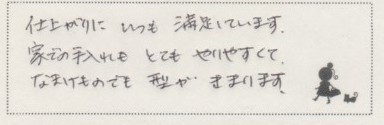 仕上がりに いつも 満足しています.
家での手入れも とても やりやすくて.
なまけものでも 型が きまります.